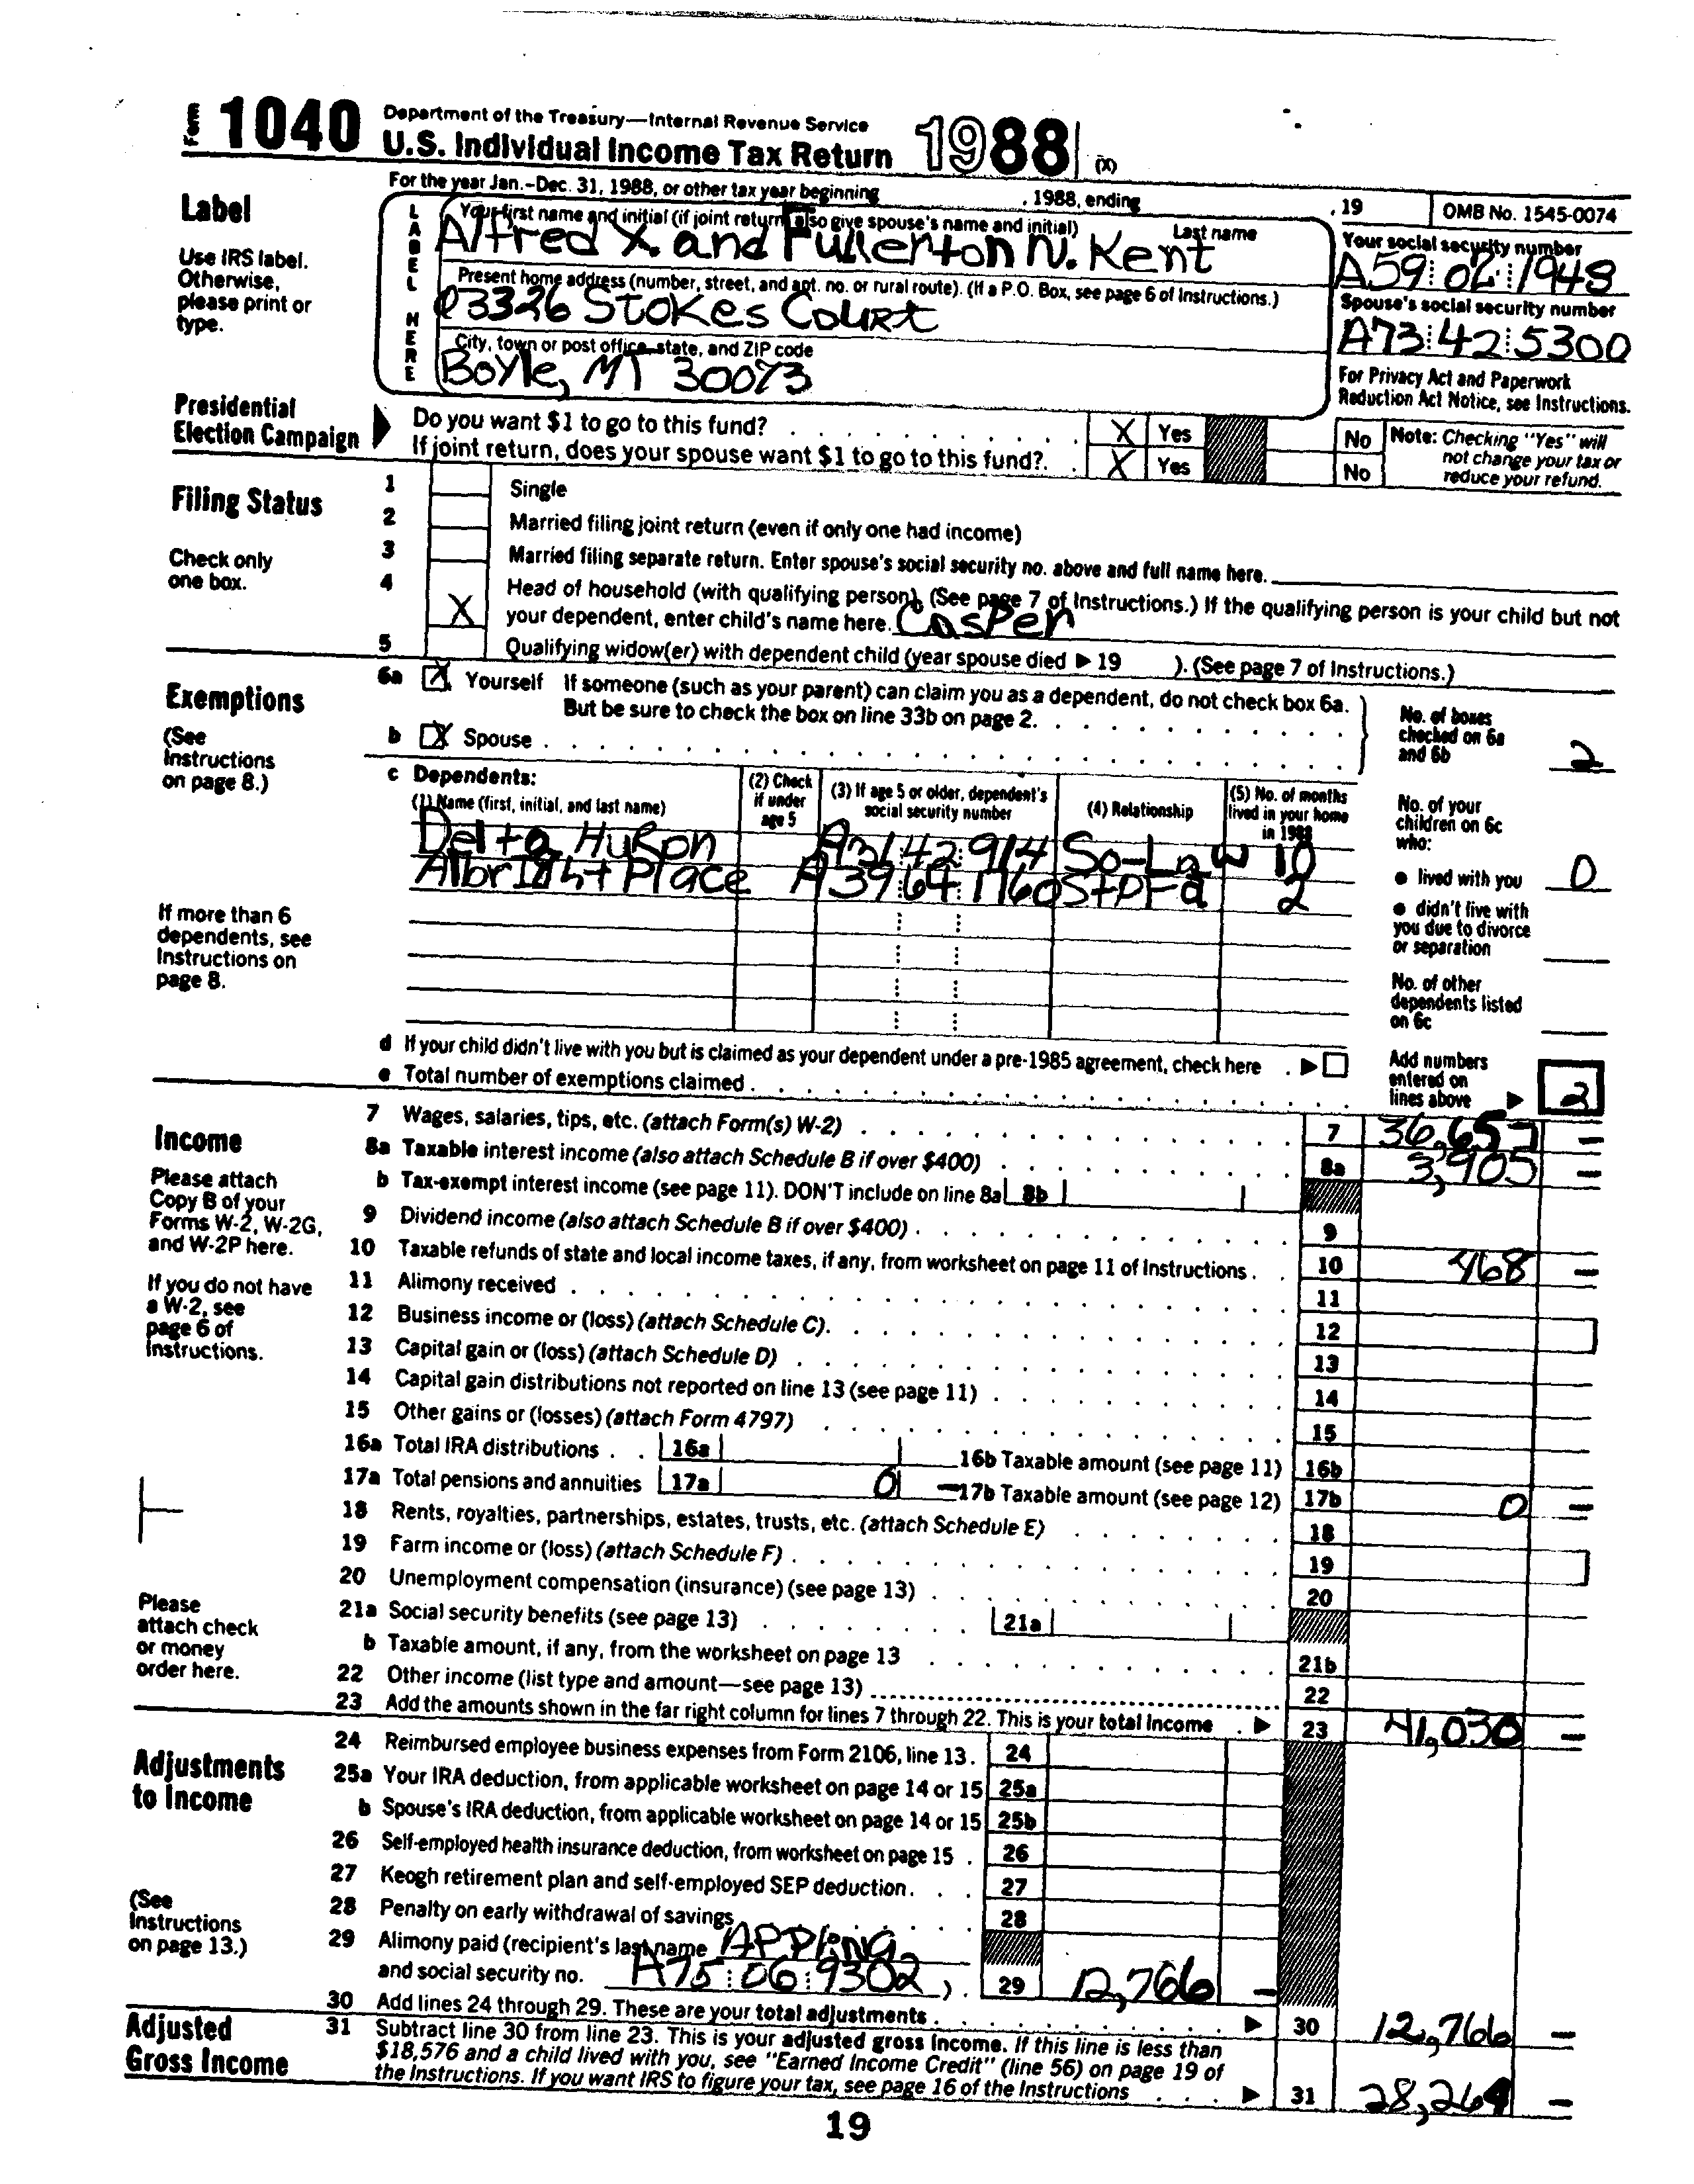 Form 1040 Department of the Treasury—Internal Revenue Service
U.S. Individual Income Tax Return 1988 (X)
For the year Jan.-Dec. 31, 1988, or other tax year beginning , 1988, ending , 19 OMB No. 1545-0074
Label
Use IRS label. Otherwise, please print or type.
LABEL HERE
Your first name and initial (if joint return, also give spouse's name and initial) Last name
Alfred X. and Fullerton N. Kent
Your social security number
A59 02 1948
Present home address (number, street, and apt. no. or rural route). (If a P.O. Box, see page 6 of Instructions.)
03326 Stokes Court
Spouse's social security number
A73 42 5300
City, town or post office, state, and ZIP code
Boyle, MT 30073
For Privacy Act and Paperwork Reduction Act Notice, see Instructions.
Presidential Election Campaign
Do you want $1 to go to this fund? X Yes No
If joint return, does your spouse want $1 to go to this fund?. X Yes No
Note: Checking "Yes" will not change your tax or reduce your refund.
Filing Status
Check only one box.
1 Single
2 Married filing joint return (even if only one had income)
3 Married filing separate return. Enter spouse's social security no. above and full name here.
4 X Head of household (with qualifying person). (See page 7 of Instructions.) If the qualifying person is your child but not
your dependent, enter child's name here. Casper
5 Qualifying widow(er) with dependent child (year spouse died ▶ 19 ). (See page 7 of Instructions.)
Exemptions
(See Instructions on page 8.)
6a X Yourself If someone (such as your parent) can claim you as a dependent, do not check box 6a.
But be sure to check the box on line 33b on page 2.
b X Spouse
No. of boxes checked on 6a and 6b 2
c Dependents:
(1) Name (first, initial, and last name) (2) Check if under age 5 (3) If age 5 or older, dependent's social security number (4) Relationship (5) No. of months lived in your home in 1988
Delta Huron A31 42 914 So-Law 10
Albright Place A39 64 1760 StpFa 2
No. of your children on 6c who:
• lived with you 0
• didn't live with you due to divorce or separation
No. of other dependents listed on 6c
If more than 6 dependents, see Instructions on page 8.
d If your child didn't live with you but is claimed as your dependent under a pre-1985 agreement, check here ▶
e Total number of exemptions claimed
Add numbers entered on lines above ▶ 2
Income
Please attach Copy B of your Forms W-2, W-2G, and W-2P here.
If you do not have a W-2, see page 6 of Instructions.
Please attach check or money order here.
7 Wages, salaries, tips, etc. (attach Form(s) W-2) 7 36,657 —
8a Taxable interest income (also attach Schedule B if over $400) 8a 3,905 —
b Tax-exempt interest income (see page 11). DON'T include on line 8a 8b
9 Dividend income (also attach Schedule B if over $400) 9
10 Taxable refunds of state and local income taxes, if any, from worksheet on page 11 of Instructions 10 468 —
11 Alimony received 11
12 Business income or (loss) (attach Schedule C). 12
13 Capital gain or (loss) (attach Schedule D) 13
14 Capital gain distributions not reported on line 13 (see page 11) 14
15 Other gains or (losses) (attach Form 4797) 15
16a Total IRA distributions 16a 16b Taxable amount (see page 11) 16b
17a Total pensions and annuities 17a 0 — 17b Taxable amount (see page 12) 17b 0 —
18 Rents, royalties, partnerships, estates, trusts, etc. (attach Schedule E) 18
19 Farm income or (loss) (attach Schedule F) 19
20 Unemployment compensation (insurance) (see page 13) 20
21a Social security benefits (see page 13) 21a
b Taxable amount, if any, from the worksheet on page 13 21b
22 Other income (list type and amount—see page 13) 22
23 Add the amounts shown in the far right column for lines 7 through 22. This is your total income ▶ 23 41,030 —
Adjustments to Income
(See Instructions on page 13.)
24 Reimbursed employee business expenses from Form 2106, line 13. 24
25a Your IRA deduction, from applicable worksheet on page 14 or 15 25a
b Spouse's IRA deduction, from applicable worksheet on page 14 or 15 25b
26 Self-employed health insurance deduction, from worksheet on page 15 26
27 Keogh retirement plan and self-employed SEP deduction 27
28 Penalty on early withdrawal of savings 28
29 Alimony paid (recipient's last name APPling
and social security no. A75 06 9302 ). 29 12,766 —
30 Add lines 24 through 29. These are your total adjustments ▶ 30 12,766 —
Adjusted Gross Income
31 Subtract line 30 from line 23. This is your adjusted gross income. If this line is less than
$18,576 and a child lived with you, see "Earned Income Credit" (line 56) on page 19 of
the Instructions. If you want IRS to figure your tax, see page 16 of the Instructions ▶ 31 28,264 —
19